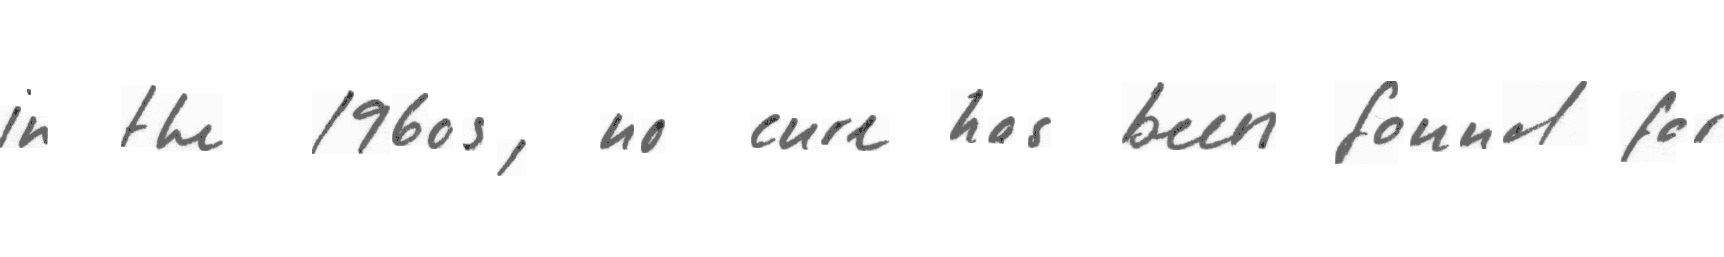 in the 1960s, no cure has been found for